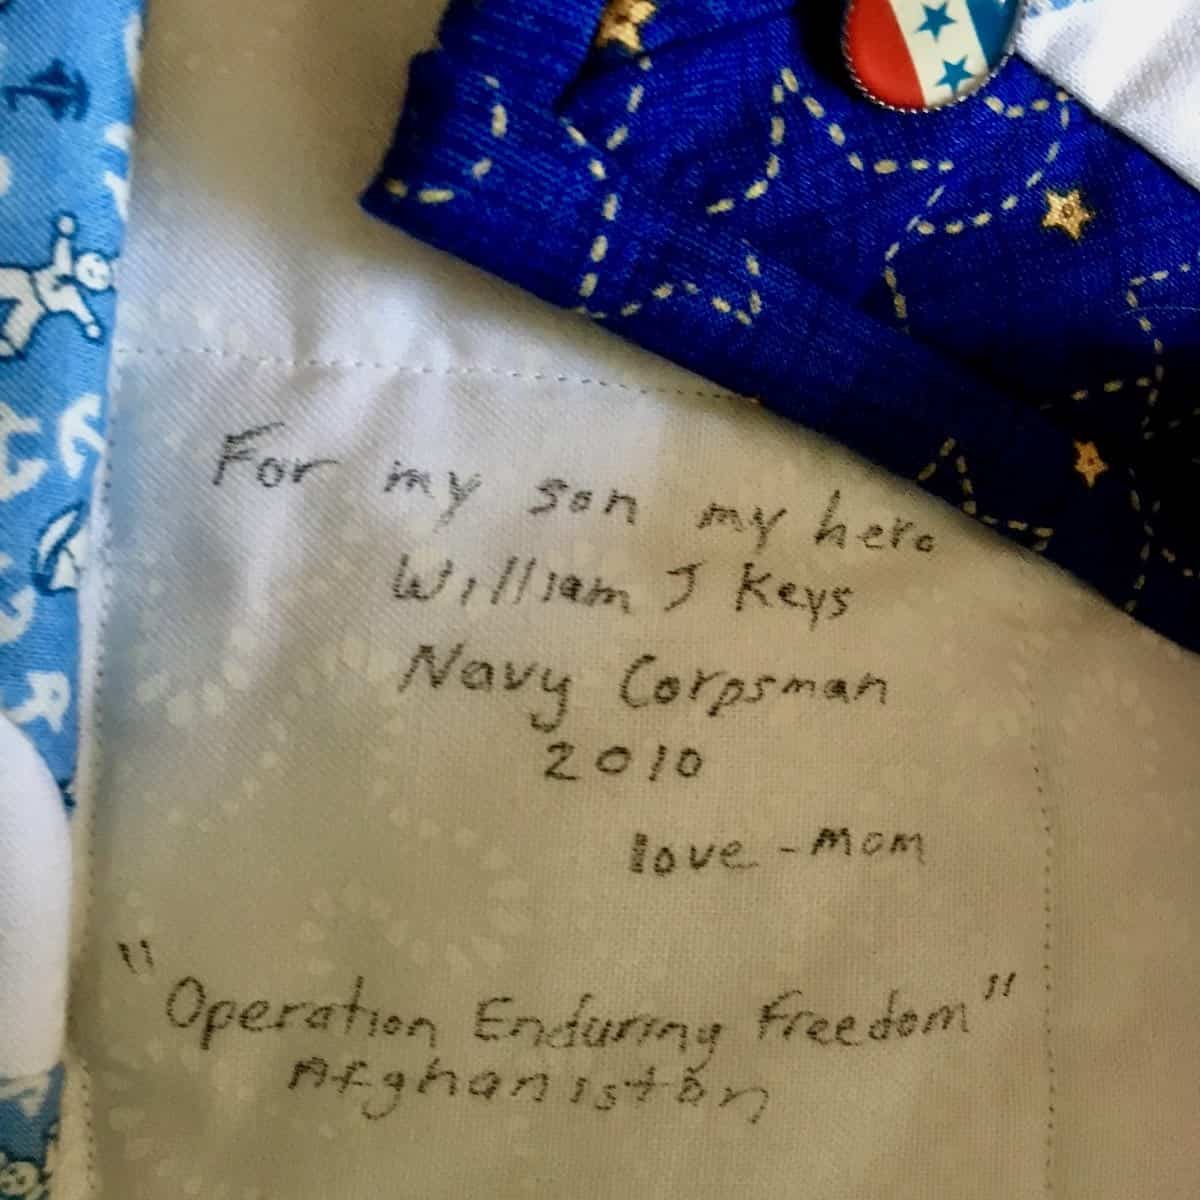 For my son my hero
William J Keys
Navy Corpsman
2010
love - mom
"Operation Enduring Freedom"
Afghanistan